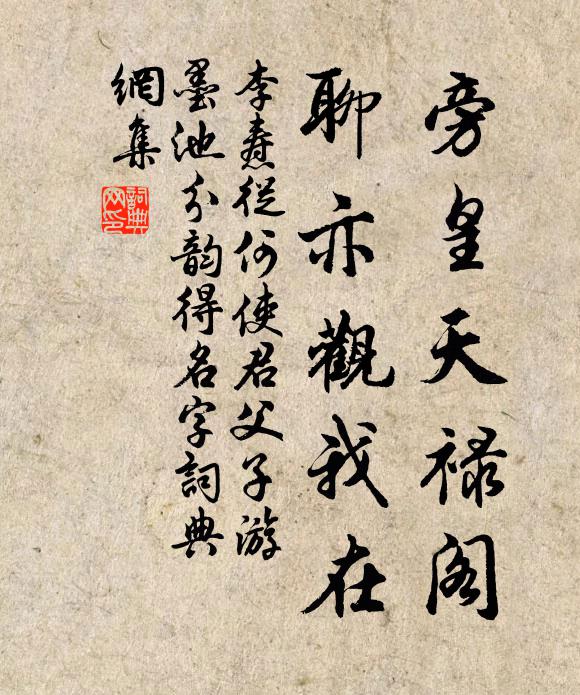 旁皇天禄阁
聊亦觀我在
李燾從何使君父子游
墨池分韵得名字詞典
網集
詞典网印